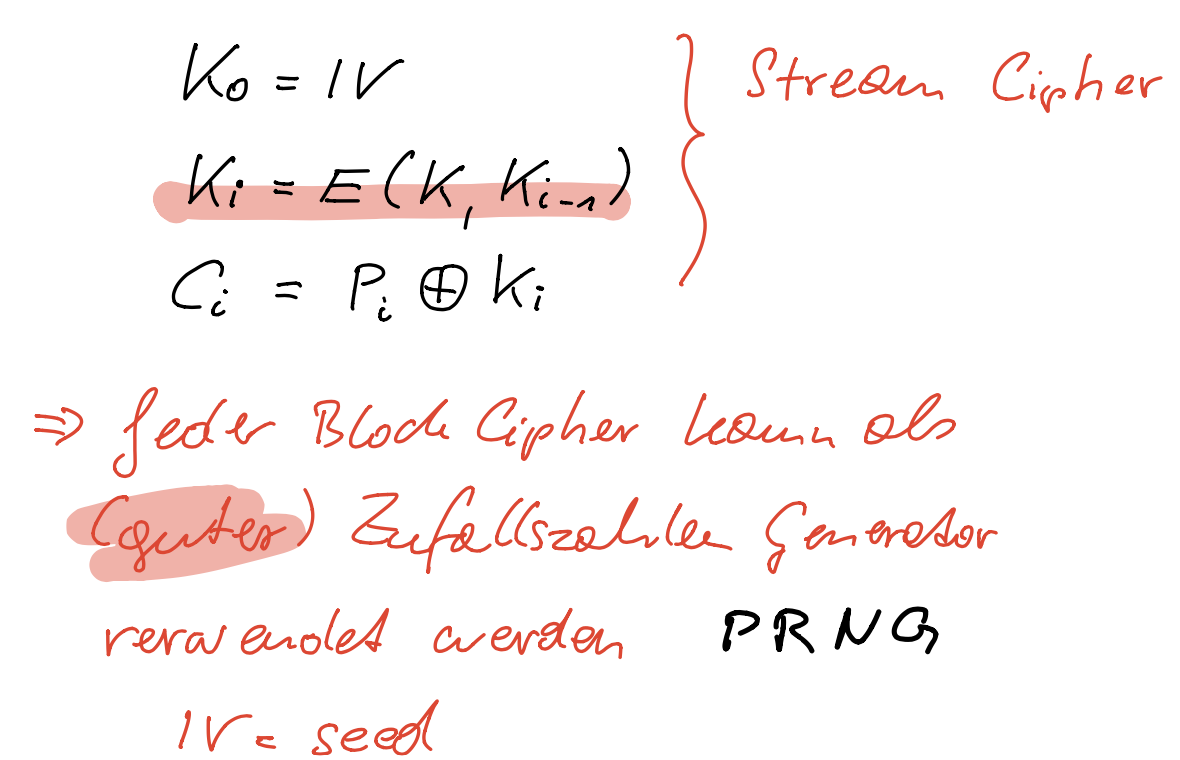 K₀ = IV
Kᵢ = E(K, Kᵢ₋₁)
Cᵢ = Pᵢ ⊕ Kᵢ
Stream Cipher
⇒ Jeder Block Cipher kann als
(guter) Zufallszahlen Generator
verwendet werden PRNG
IV = seed